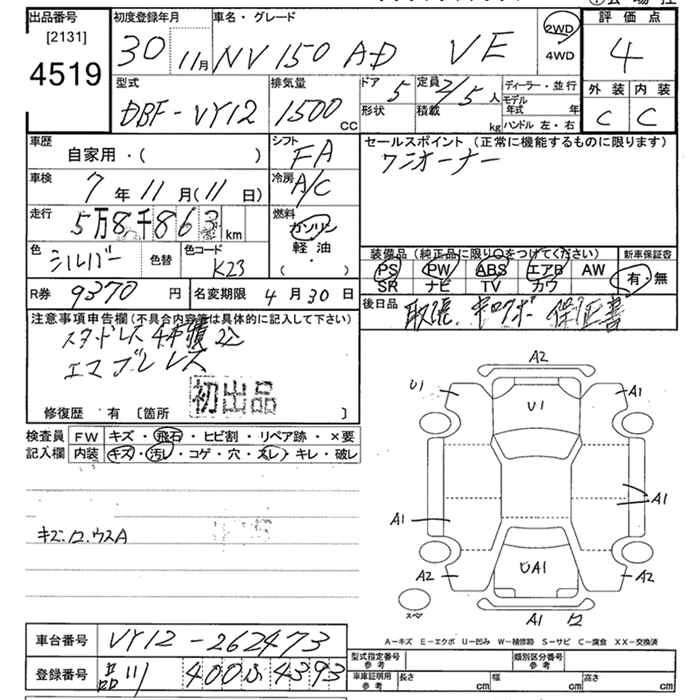 出品番号
[2131]
4519
初度登録年月
30 11月
車名・グレード
NV150 AD VE
2WD
4WD
評価点
4
外装 内装
C C
型式
DBF-VY12
排気量
1500 CC
ドア
5
形状
定員
2/5 人
積載
kg
ディーラー・並行
モデル年式 年
ハンドル 左・右
車歴
自家用・( )
シフト
FA
車検
7 年 11 月 (11 日)
冷房
A/C
走行
5万8千863 km
燃料
ガソリン
軽・油
( )
色
シルバー
色替
色コード
K23
R券 9370 円
名変期限 4 月 30 日
セールスポイント (正常に機能するものに限ります)
ワンオーナー
装備品 (純正品に限り○をつけてください)
PS PW ABS エアB AW
SR ナビ TV カワ
新車保証書
有・無
後日品
取説. 保証書
注意事項申告欄 (不具合内容等は具体的に記入して下さい)
初出品
修復歴 有 [箇所 ]
検査員
記入欄
FW キズ・飛石・ヒビ割・リペア跡・×要
内装 キズ・汚レ・コゲ・穴・スレ・キレ・破レ
A2
U1
U1
A1
A1
A1
A2
UA1
A2
スペア
A1
A-キズ E-エクボ U-凹み W-補修跡 S-サビ C-腐食 XX-交換済
車台番号 VY12-262473
登録番号 111 400 4393
型式指定番号
参考
類別区分番号
参考
車庫証明用
参考
長さ cm
幅 cm
高さ cm